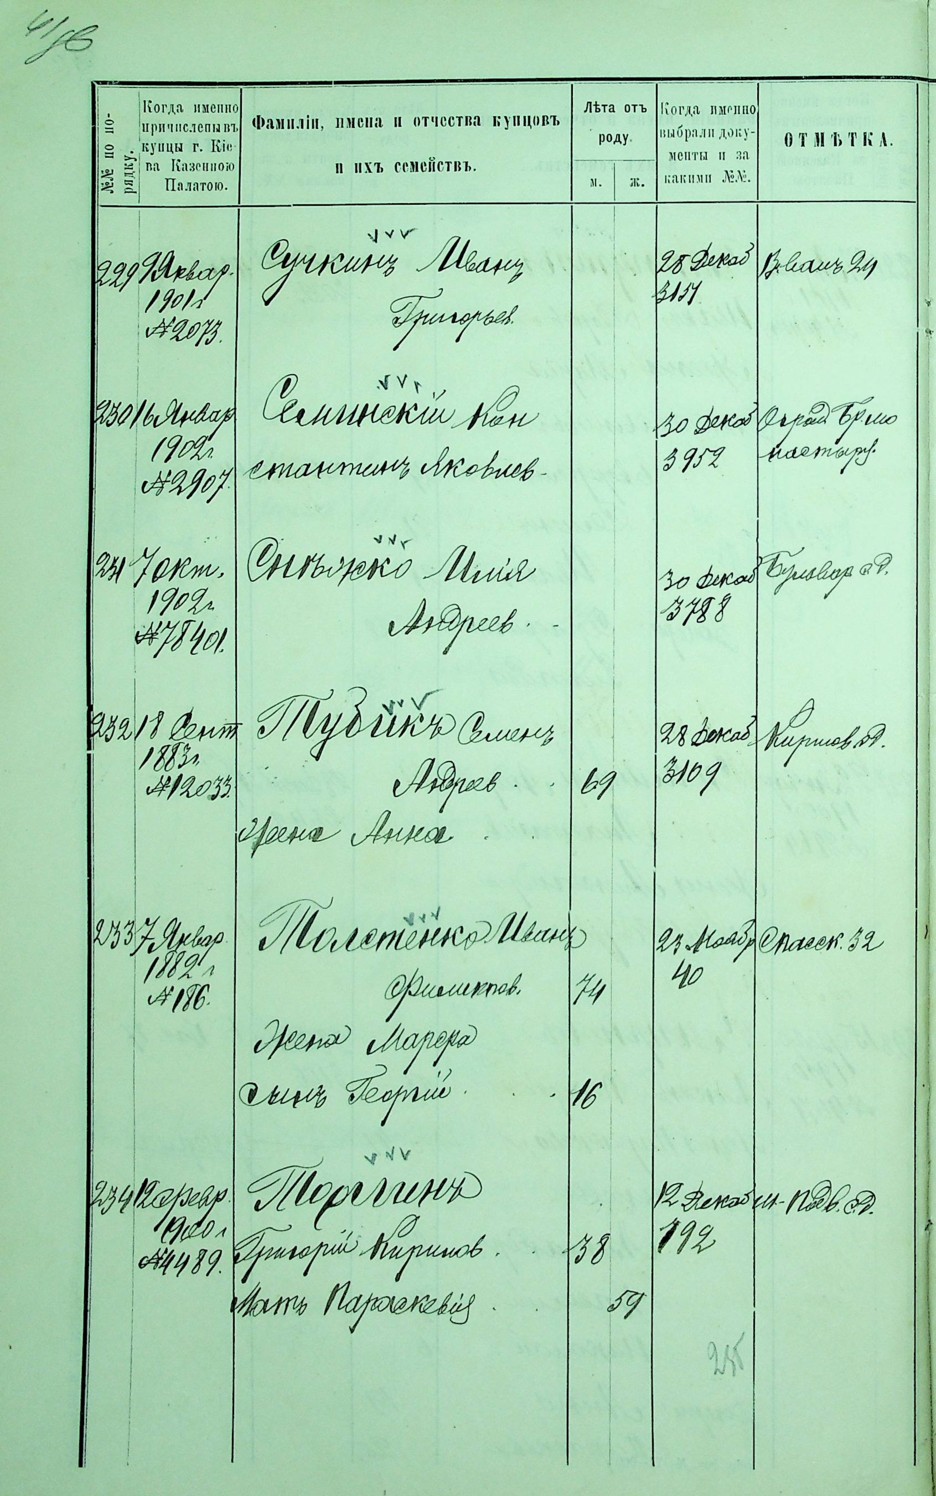 №№ по по-
рядку.
Когда именно
причислены въ
купцы г. Кіе-
ва Казенною
Палатою.
Фамиліи, имена и отчества купцовъ
и ихъ семействъ.
Лѣта отъ
роду.
м. ж.
Когда именно
выбрали доку-
менты и за
какими №№.
ОТМѢТКА.
229 9 Январ. Сучкинъ Иванъ 28 Декаб
1901 г 3151
Григорьев.
№2073.
230 16 Январ Семинскій Кон 30 Декаб
1902 г
стантинъ Яковлев- 3952
№2907.
231 7 окт. Снѣжко Илія 30 Декаб Бульвар с.д.
1902 г. 3788
Андреев.
№78401.
232 18 Сент Тубикъ Семенъ 28 Декаб Кирилов. с.д.
1883 г. 3109
№12033. Андреев 69
жена Анна
233 7 Январ. Толстенко Иванъ 23 Ноябр Спасск. 32
1882 г 40
№186. Филипов. 74
Жена Марфа
сынъ Георгій 16
234 12 февр. Торгинъ 12 Декаб
1900 г 192
№4489. Григорій Кирилов 38
Мать Параскевія 59